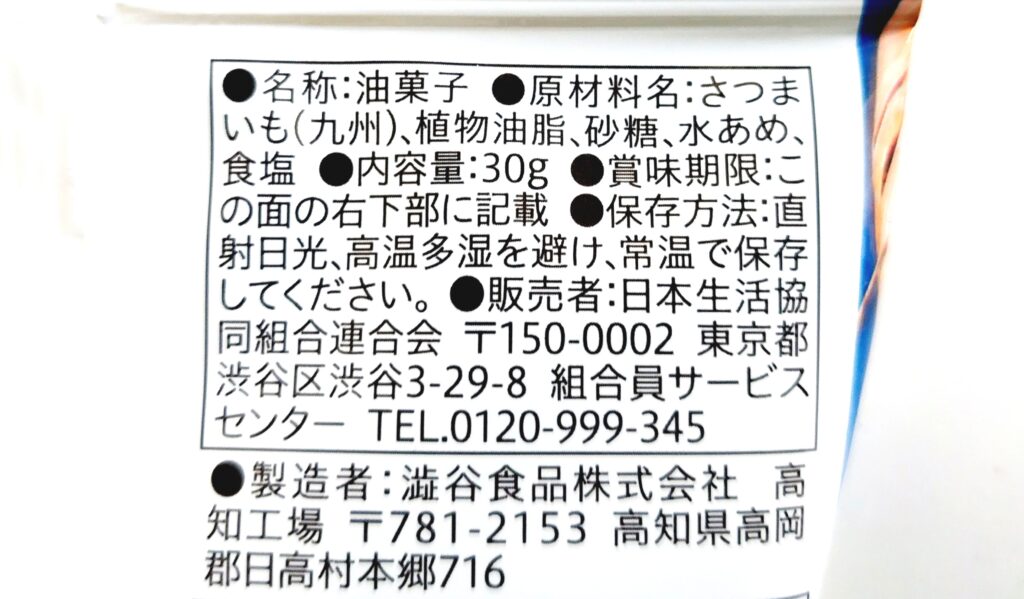 ●名称:油菓子 ●原材料名:さつま
いも(九州)、植物油脂、砂糖、水あめ、
食塩 ●内容量:30g ●賞味期限:こ
の面の右下部に記載 ●保存方法:直
射日光、高温多湿を避け、常温で保存
してください。 ●販売者:日本生活協
同組合連合会 〒150-0002 東京都
渋谷区渋谷3-29-8 組合員サービス
センター TEL.0120-999-345
●製造者:澁谷食品株式会社 高
知工場 〒781-2153 高知県高岡
郡日高村本郷716